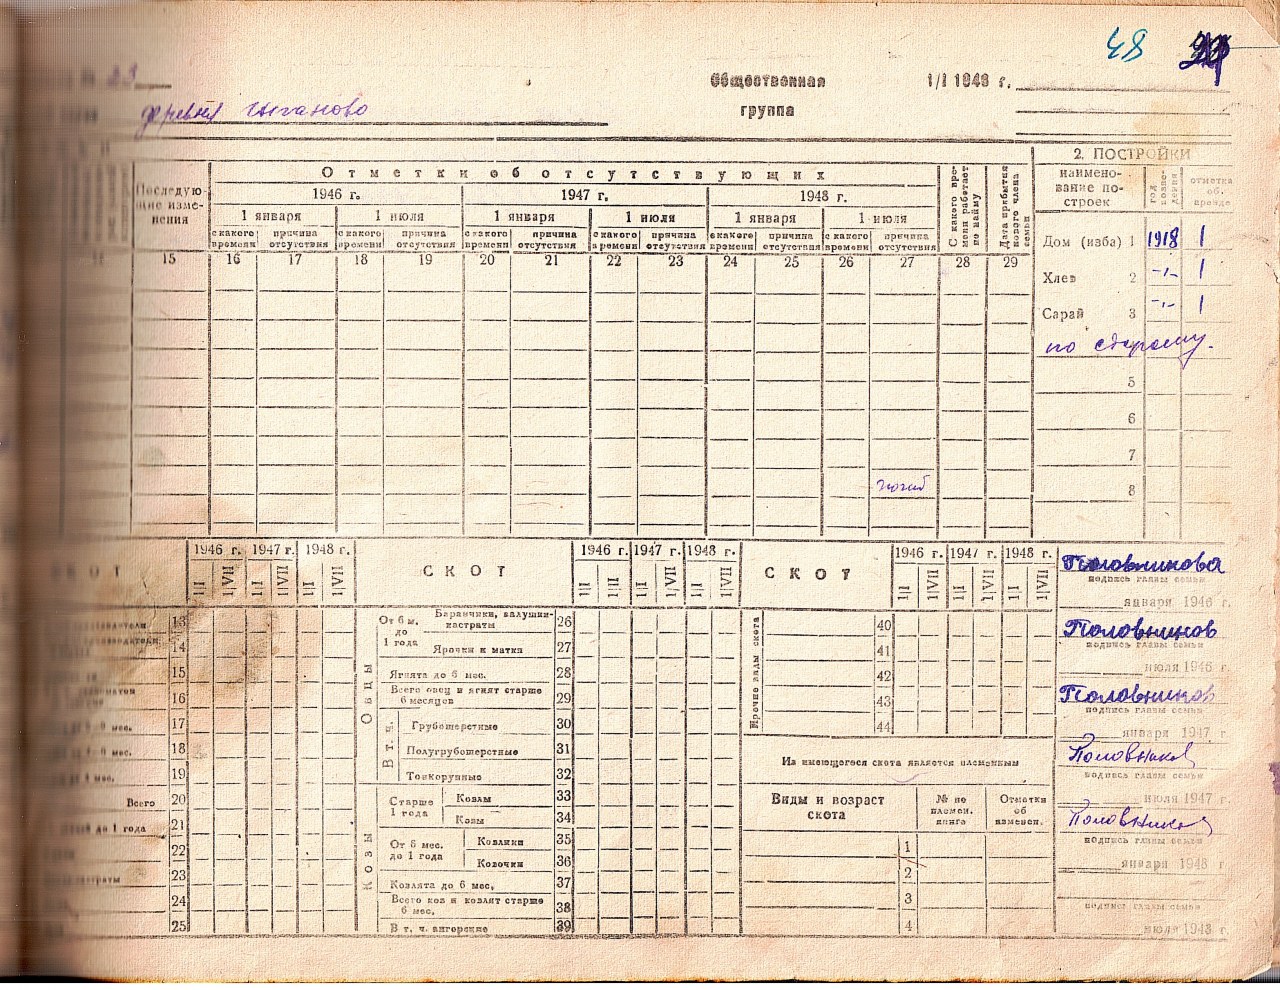 48
23
Общественная группа
1/I 1948 г.
деревня Цыганово
Отметки об отсутствующих
2. ПОСТРОЙКИ
Последующие изменения
1946 г. 1947 г. 1948 г.
1 января 1 июля 1 января 1 июля 1 января 1 июля
с какого времени причина отсутствия с какого времени причина отсутствия с какого времени причина отсутствия с какого времени причина отсутствия с какого времени причина отсутствия с какого времени причина отсутствия
С какого времени работает по найму
Дата прибытия нового члена семьи
наименование построек
год возведения
отметка об. аренде
15 16 17 18 19 20 21 22 23 24 25 26 27 28 29
Дом (изба) 1 1918 1
Хлев 2 -"- 1
Сарай 3 -"- 1
по старому.
5
6
7
8
погиб
СКОТ
1946 г. 1947 г. 1948 г.
1/I 1/VII 1/I 1/VII 1/I 1/VII
13
14
15
16
17
18
19
Всего 20
до 1 года 21
22
23
24
25
СКОТ
1946 г. 1947 г. 1948 г.
1/I 1/VII 1/I 1/VII 1/I 1/VII
Овцы
От 6 м. до 1 года
Баранчики, валушки-кастраты 26
Ярочки и матки 27
Ягнята до 6 мес. 28
Всего овец и ягнят старше 6 месяцев 29
В т. ч.
Грубошерстные 30
Полугрубошерстные 31
Тонкорунные 32
Козы
Старше 1 года
Козлы 33
Козы 34
От 6 мес. до 1 года
Козлики 35
Козочки 36
Козлята до 6 мес. 37
Всего коз и козлят старше 6 мес. 38
В т. ч. ангорские 39
СКОТ
1946 г. 1947 г. 1948 г.
1/I 1/VII 1/I 1/VII 1/I 1/VII
Прочие виды скота
40
41
42
43
44
Из имеющегося скота является племенным
Виды и возраст скота
№ по племен. книге
Отметки об изменен.
1
2
3
4
Половникова
подпись главы семьи
января 1946 г.
Половников
подпись главы семьи
июля 1946 г.
Половников
подпись главы семьи
января 1947 г.
Половников
подпись главы семьи
июля 1947 г.
Половников
подпись главы семьи
января 1948 г.
подпись главы семьи
июля 1948 г.